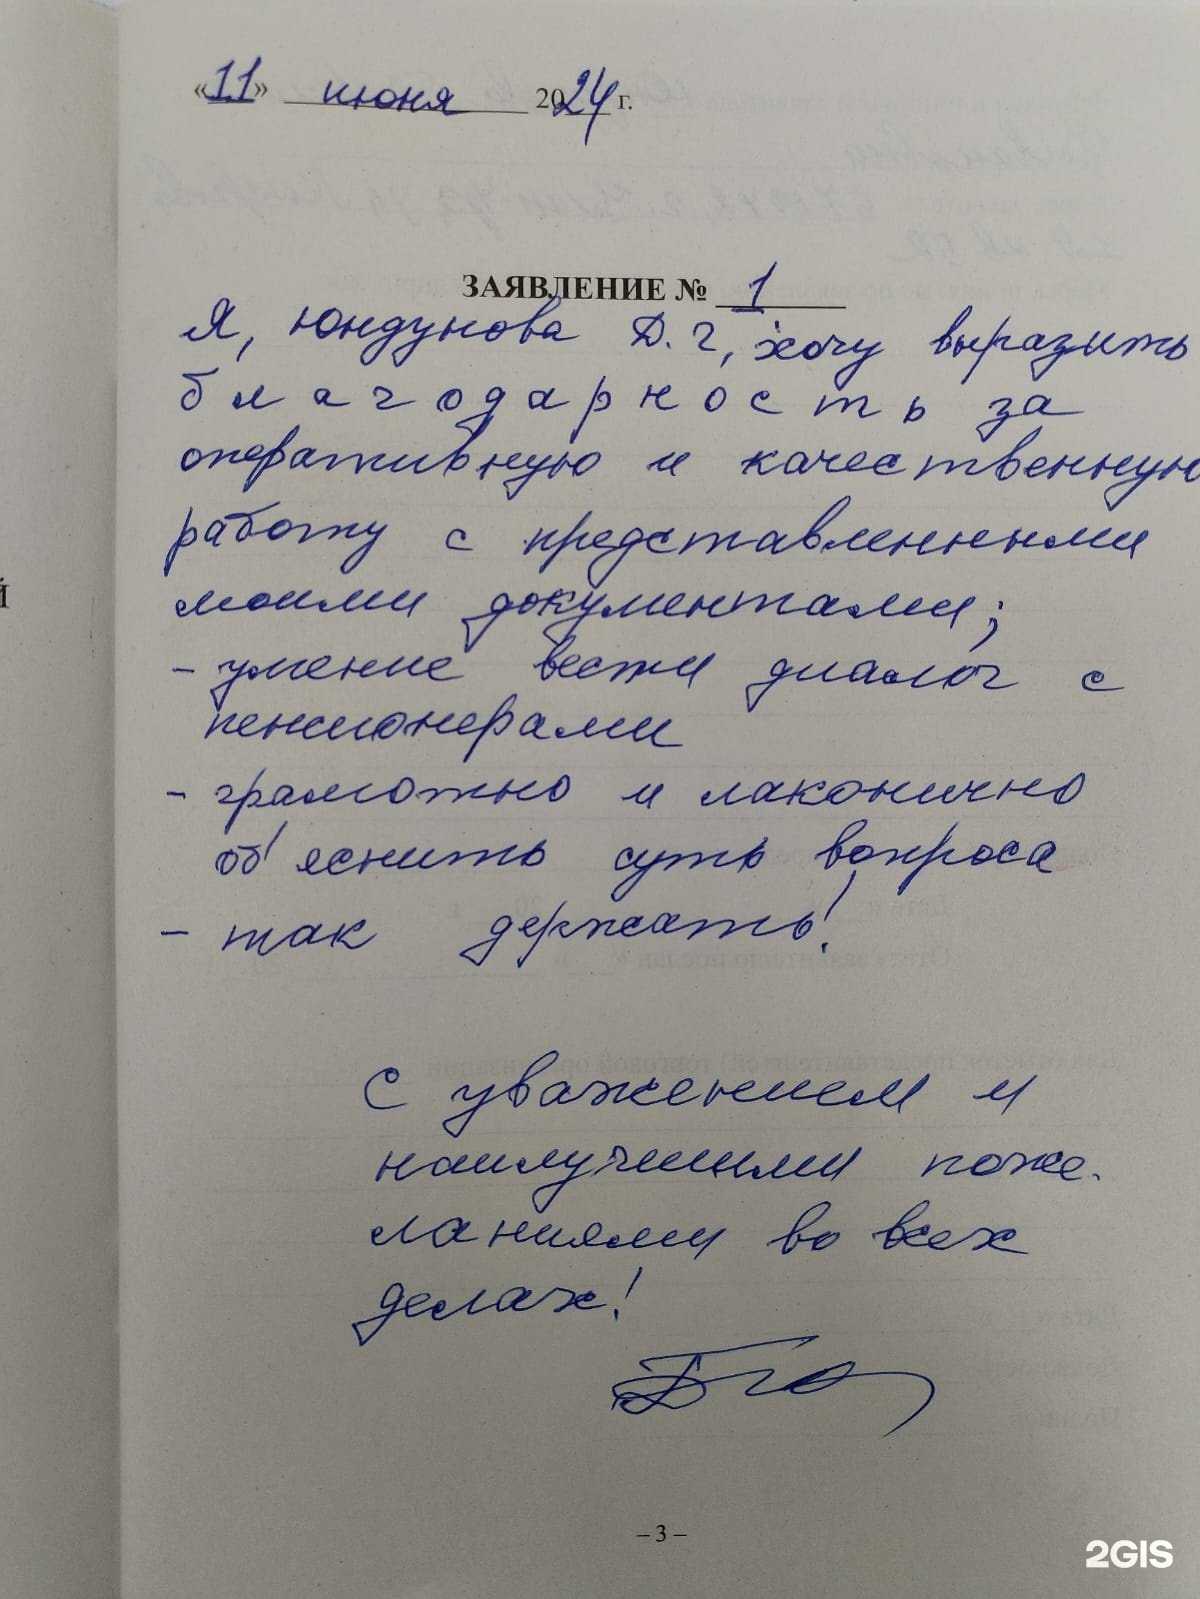 «11» июня 2024 г.
ЗАЯВЛЕНИЕ № 1
Я, Юндунова Д. Г, хочу выразить
благодарность за
оперативную и качественную
работу с представленными
моими документами;
- умение вести диалог с
пенсионерами
- грамотно и лаконично
об'яснить суть вопроса
- так держать!
С уважением и
наилучшими поже-
ланиями во всех
делах!
– 3 –
Й
2GIS